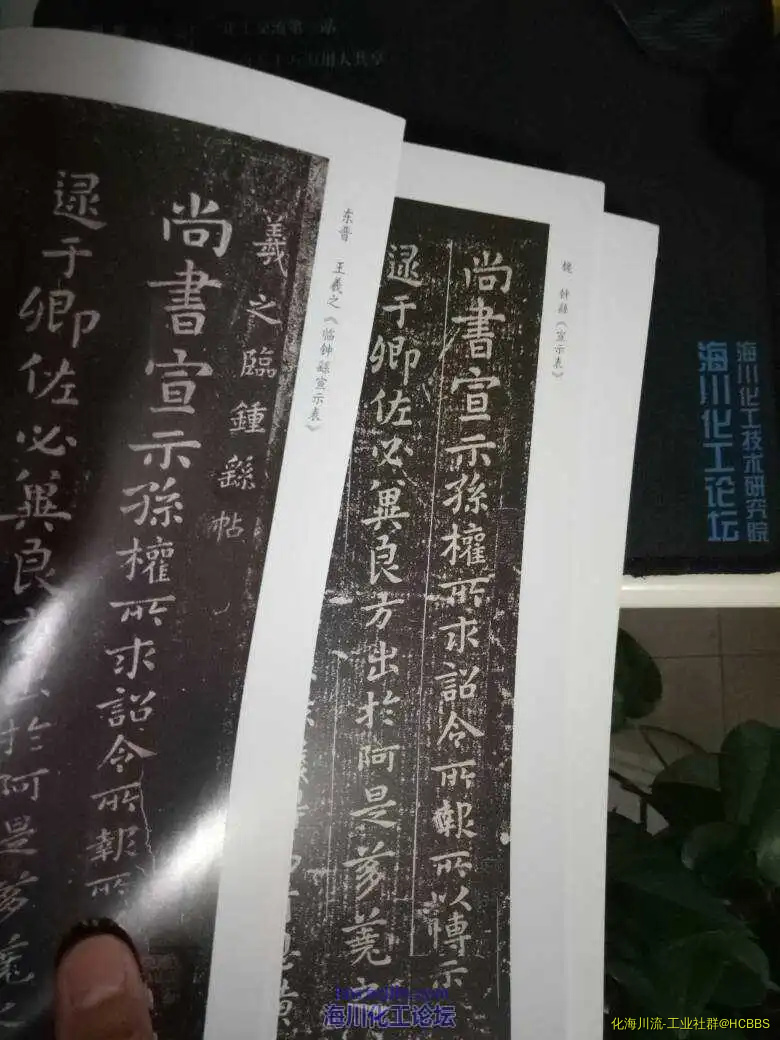 魏 钟繇《宣示表》
尚書宣示孫權所求詔令所報所以博示
逮于卿佐必冀良方出於阿是芻蕘
东晋 王羲之《临钟繇宣示表》
羲之臨鍾繇帖
尚書宣示孫權所求詔令所報所
逮于卿佐必冀良方出於阿是芻蕘之
海川化工技术研究院
海川化工论坛
海川化工论坛
化海川流-工业社群@HCBBS